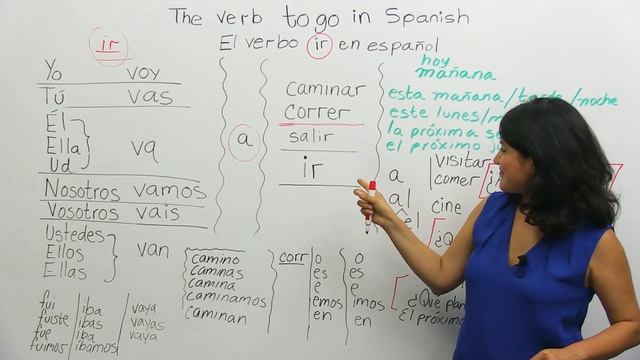 The verb to go in Spanish
El verbo ir en español
ir
Yo voy
Tú vas
Él
Ella
Ud
va
Nosotros vamos
Vosotros vais
Ustedes
Ellos
Ellas
van
fui iba vaya
fuiste ibas vayas
fue iba vaya
fuimos ibamos
a
caminar
correr
salir
ir
camino
caminas
camina
caminamos
caminan
corr
o
es
e
emos
en
o
es
e
imos
en
hoy
mañana
esta mañana/tarde/noche
este lunes/
la próxima
el próximo
a
al
el
visitar
comer
cine
¿Qué plan
El próximo